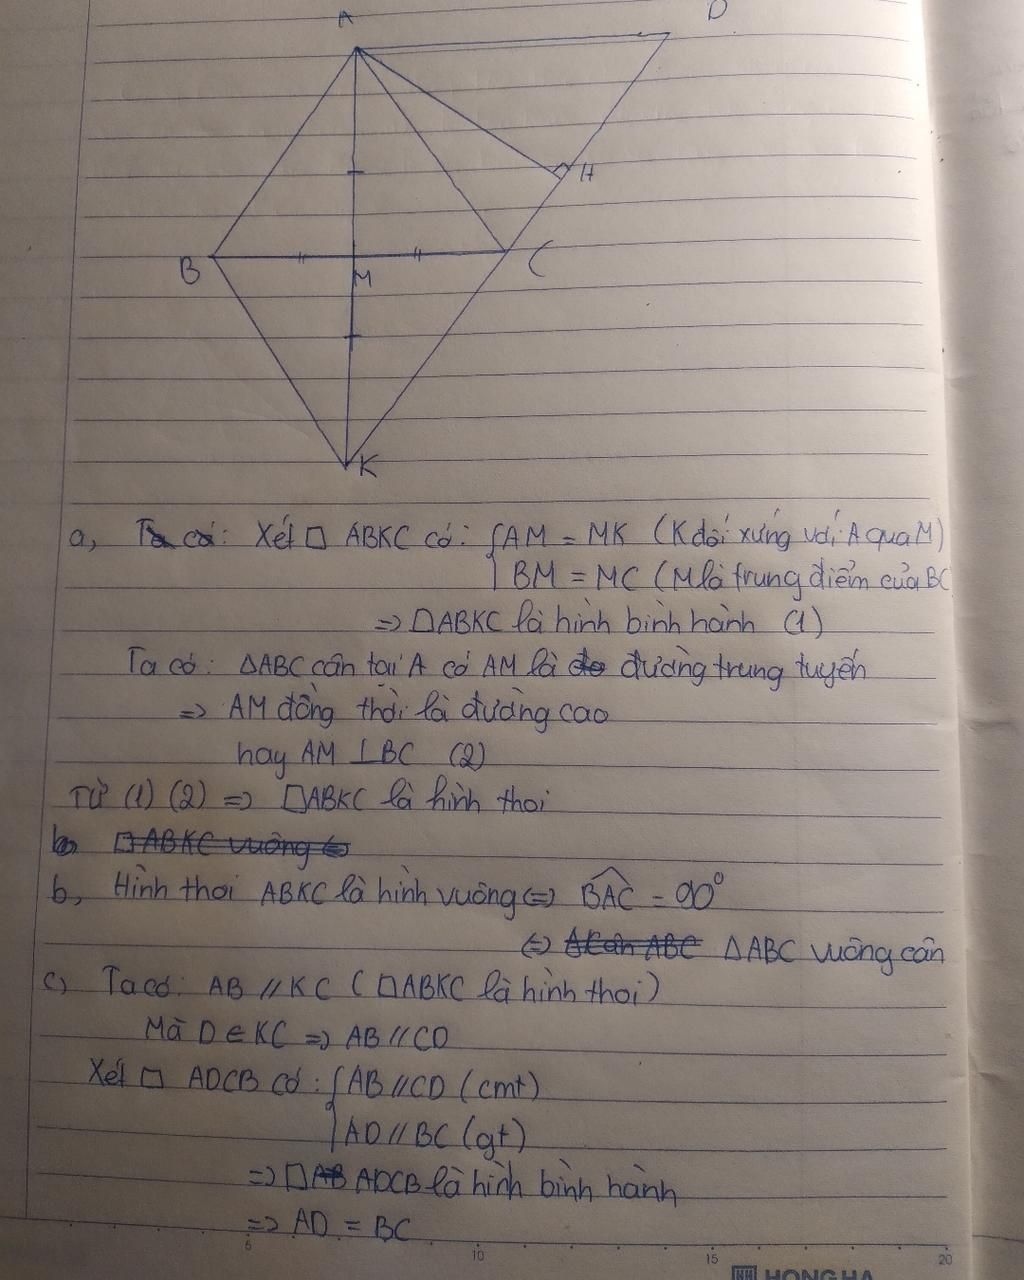 A
D
H
B
M
C
K
a, Ta có: Xét □ ABKC có: { AM = MK (K đối xứng với A qua M)
BM = MC (M là trung điểm của BC
=> □ABKC là hình bình hành (1)
Ta có: ΔABC cân tại A có AM là đo đường trung tuyến
=> AM đồng thời là đường cao
hay AM ⊥ BC (2)
Từ (1) (2) => □ABKC là hình thoi
b, □ABKC vuông <=>
b, Hình thoi ABKC là hình vuông <=> \widehat{BAC} = 90°
<=> ΔABC vuông cân
c) Ta có: AB // KC (□ABKC là hình thoi)
Mà D ∈ KC => AB // CD
Xét □ ADCB có: { AB // CD (cmt)
AD // BC (gt)
=> □AB ADCB là hình bình hành
=> AD = BC
5 10 15 20
HH HONG HA